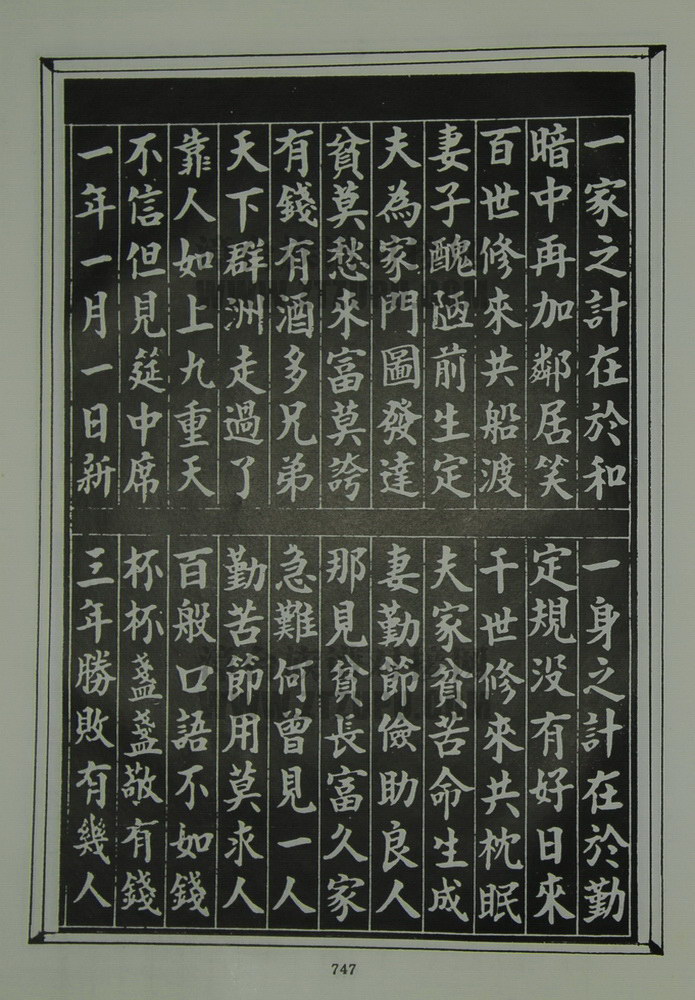 一家之計在於和
一身之計在於勤
暗中再加鄰居笑
定規没有好日來
百世修來共船渡
千世修來共枕眠
妻子醜陋前生定
夫家貧苦命生成
夫為家門圖發達
妻勤節儉助良人
貧莫愁來富莫誇
那見貧長富久家
有錢有酒多兄弟
急難何曾見一人
天下群洲走過了
勤苦節用莫求人
靠人如上九重天
百般口語不如錢
不信但見筵中席
杯杯盞盞敬有錢
一年一月一日新
三年勝敗有幾人
747